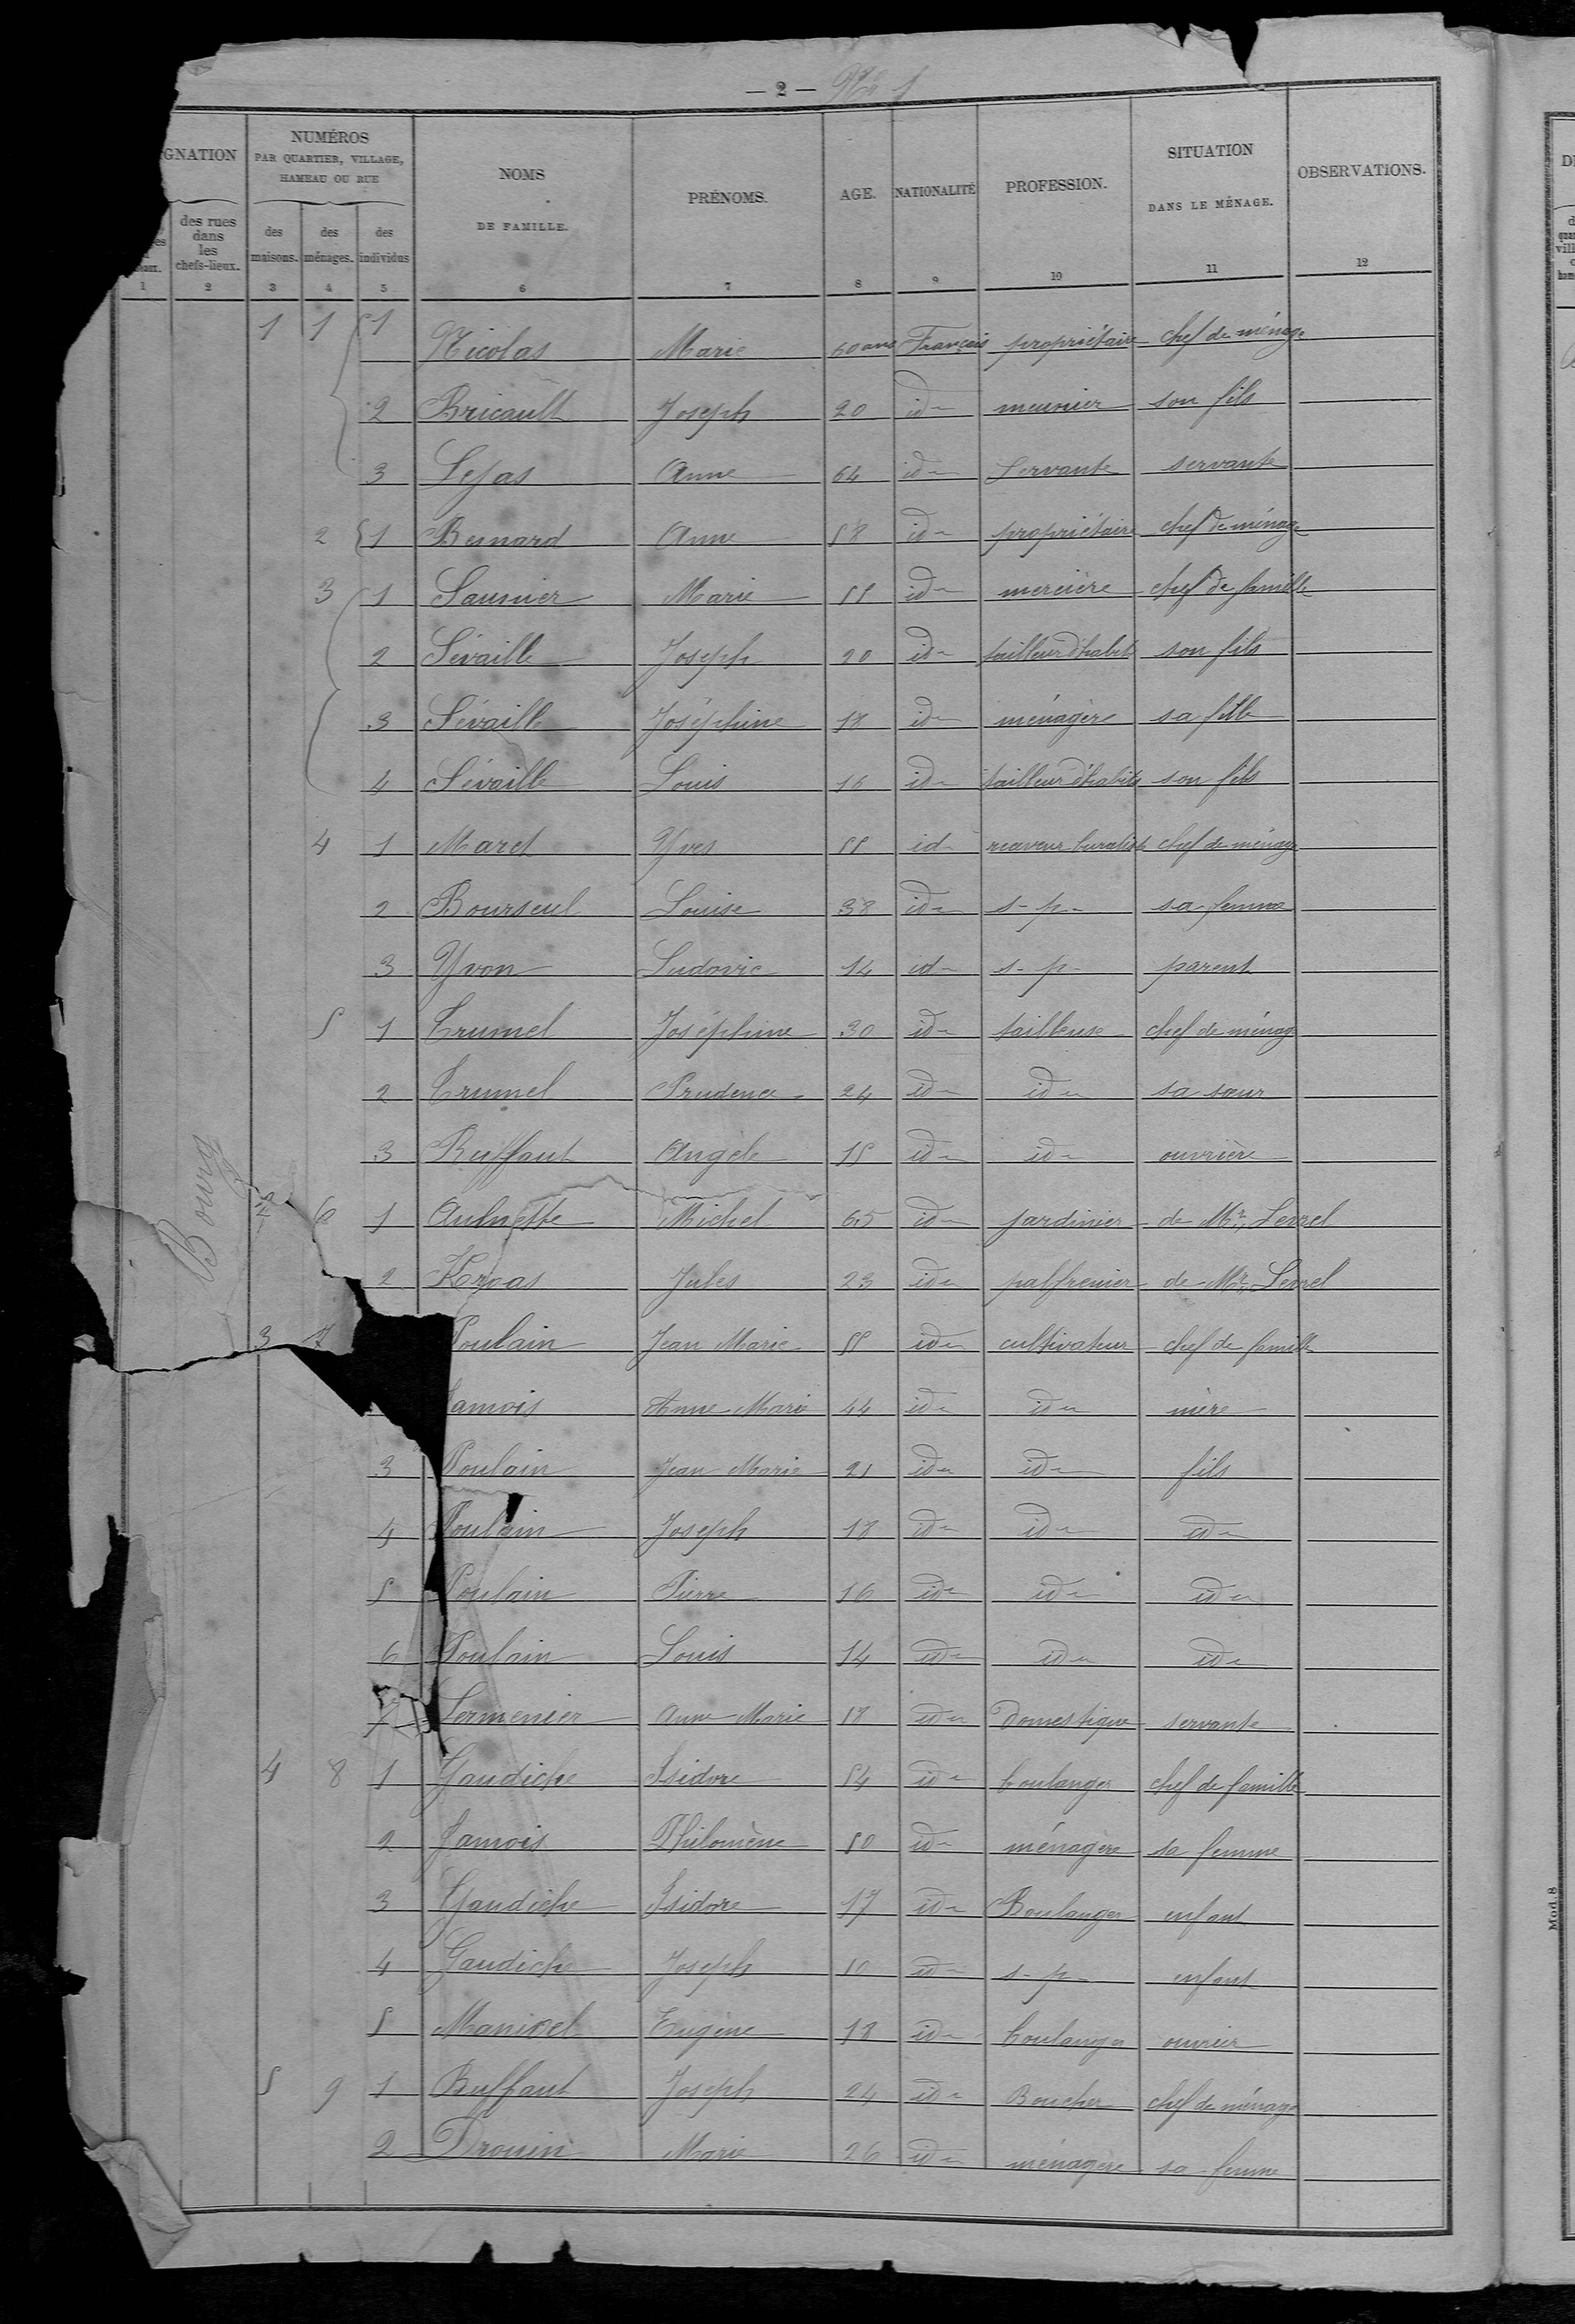 — 2 —
GNATION
NUMÉROS
PAR QUARTIER, VILLAGE,
HAMEAU OU RUE
NOMS
DE FAMILLE.
PRÉNOMS.
AGE.
NATIONALITÉ
PROFESSION.
SITUATION
DANS LE MÉNAGE.
OBSERVATIONS.
des rues
dans
les
chefs-lieux.
des
maisons.
des
ménages.
des
individus
1 2 3 4 5 6 7 8 9 10 11 12
Bourg
1 1 1 Nicolas Marie 60 ans Français propriétaire chef de ménage
2 Bricault Joseph 20 id meunier son fils
3 Lejas Anne 64 id Servante servante
2 1 Besnard Anne 58 id propriétaire chef de ménage
3 1 Saunier Marie 55 id mercière chef de famille
2 Sévaille Joseph 20 id tailleur d'habits son fils
3 Sévaille Joséphine 18 id ménagère sa fille
4 Sévaille Louis 16 id tailleur d'habits son fils
4 1 Maret Yves 55 id receveur buraliste chef de ménage
2 Bourseul Louise 38 id s-p- sa femme
3 Yvon Ludovic 14 id s-p- parent
5 1 Trumel Joséphine 30 id tailleuse chef de ménage
2 Trumel Prudence 24 id id sa sœur
3 Ruffaut Angèle 15 id id ouvrière
2 6 1 Aulnette Michel 65 id jardinier de Mr
2 Jules 23 id palfrenier de Mr
3 7 Poulain Jean Marie 55 id cultivateur chef de famille
amois Anne Marie 44 id id mère
3 Poulain Jean Marie 21 id id fils
4 Poulain Joseph 18 id id id
5 Poulain Pierre 16 id id id
6 Poulain Louis 14 id id id
7 Lermenier Anne Marie 18 id Domestique servante
4 8 1 Gaudiche Isidore 54 id boulanger chef de famille
2 Jamois Philomène 50 id ménagère sa femme
3 Gaudiche Isidore 17 id Boulanger enfant
4 Gaudiche Joseph 10 id s-p- enfant
5 Eugène 18 id boulanger ouvrier
5 9 1 Buffaut Joseph 24 id Boucher chef de ménage
2 Drouin Marie 26 id ménagère sa femme
Mod. 8